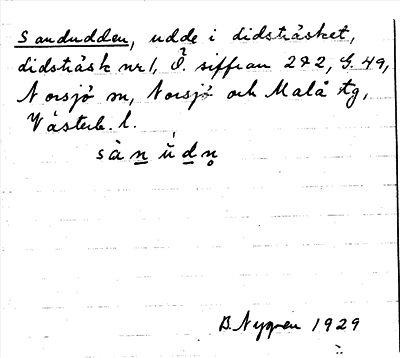 Sandudden, udde i didsträsket,
didsträsk nr 1, Ö. siffran 282, G. 49,
Norsjö sn, Norsjö och Malå tg,
Västerb. l.
sànŭdn̥
B. Nygren 1929